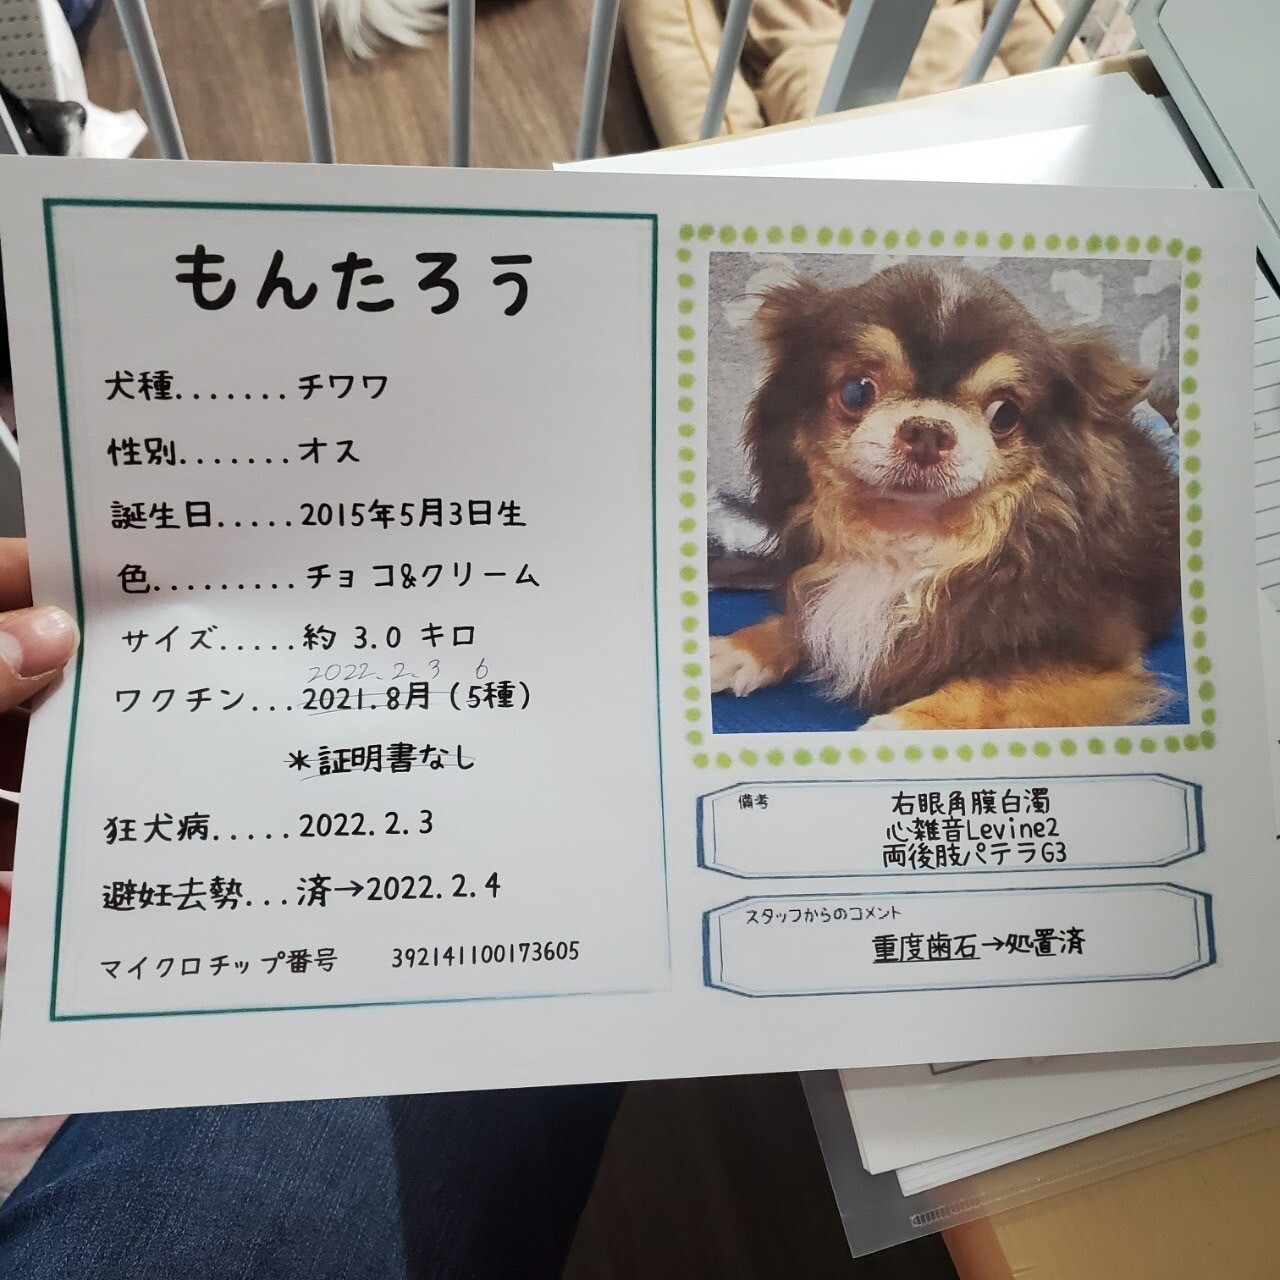 もんたろう
犬種.......チワワ
性別.......オス
誕生日.....2015年5月3日生
色.........チョコ&クリーム
サイズ.....約 3.0 キロ
2022.2.3 6
ワクチン...2021.8月（5種）
*証明書なし
狂犬病.....2022.2.3
避妊去勢...済→2022.2.4
マイクロチップ番号 392141100173605
備考
右眼角膜白濁
心雑音Levine2
両後肢パテラG3
スタッフからのコメント
重度歯石→処置済